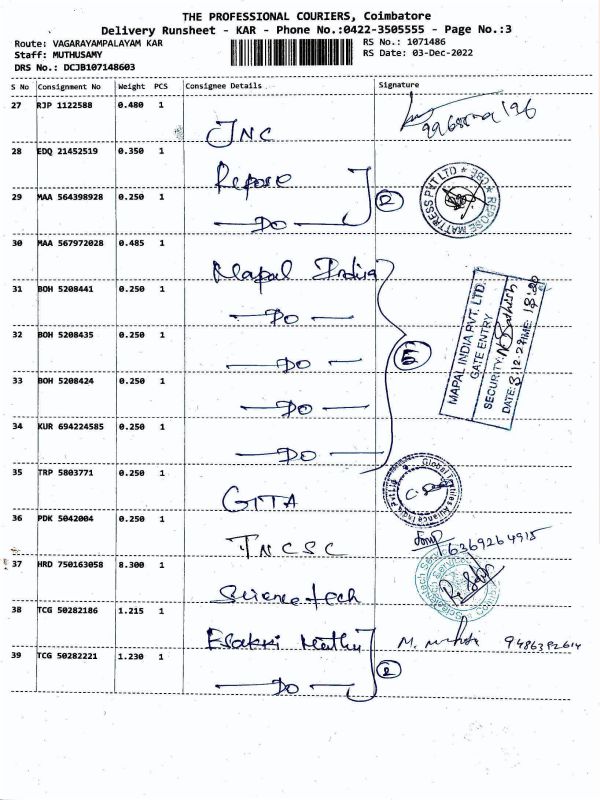 THE PROFESSIONAL COURIERS, Coimbatore
Delivery Runsheet - KAR - Phone No.:0422-3505555 - Page No.:3
Route: VAGARAYAMPALAYAM KAR
RS No.: 1071486
Staff: MUTHUSAMY
RS Date: 03-Dec-2022
DRS No.: DCJB107148603
S No Consignment No Weight PCS Consignee Details Signature
27 RJP 1122588 0.480 1
JNC
28 EDQ 21452519 0.350 1
Repose
REPOSE MATTRESS PVT LTD * CBE *
29 MAA 564398928 0.250 1
2
DO
30 MAA 567972028 0.485 1
Mapal India
31 BOH 5208441 0.250 1
DO
MAPAL INDIA PVT. LTD.
GATE ENTRY
SECURITY:
DATE: 3.12.22 TIME:
32 BOH 5208435 0.250 1
DO
33 BOH 5208424 0.250 1
DO
34 KUR 694224585 0.250 1
DO
35 TRP 5803771 0.250 1
GTTA
Global Textiles Alliance India Pvt Ltd
36 PDK 5042004 0.250 1
TNCSC
6369264915
37 HRD 750163058 8.300 1
Science tech
38 TCG 50282186 1.215 1
Esakki Muthu
9486392614
39 TCG 50282221 1.230 1
2
DO